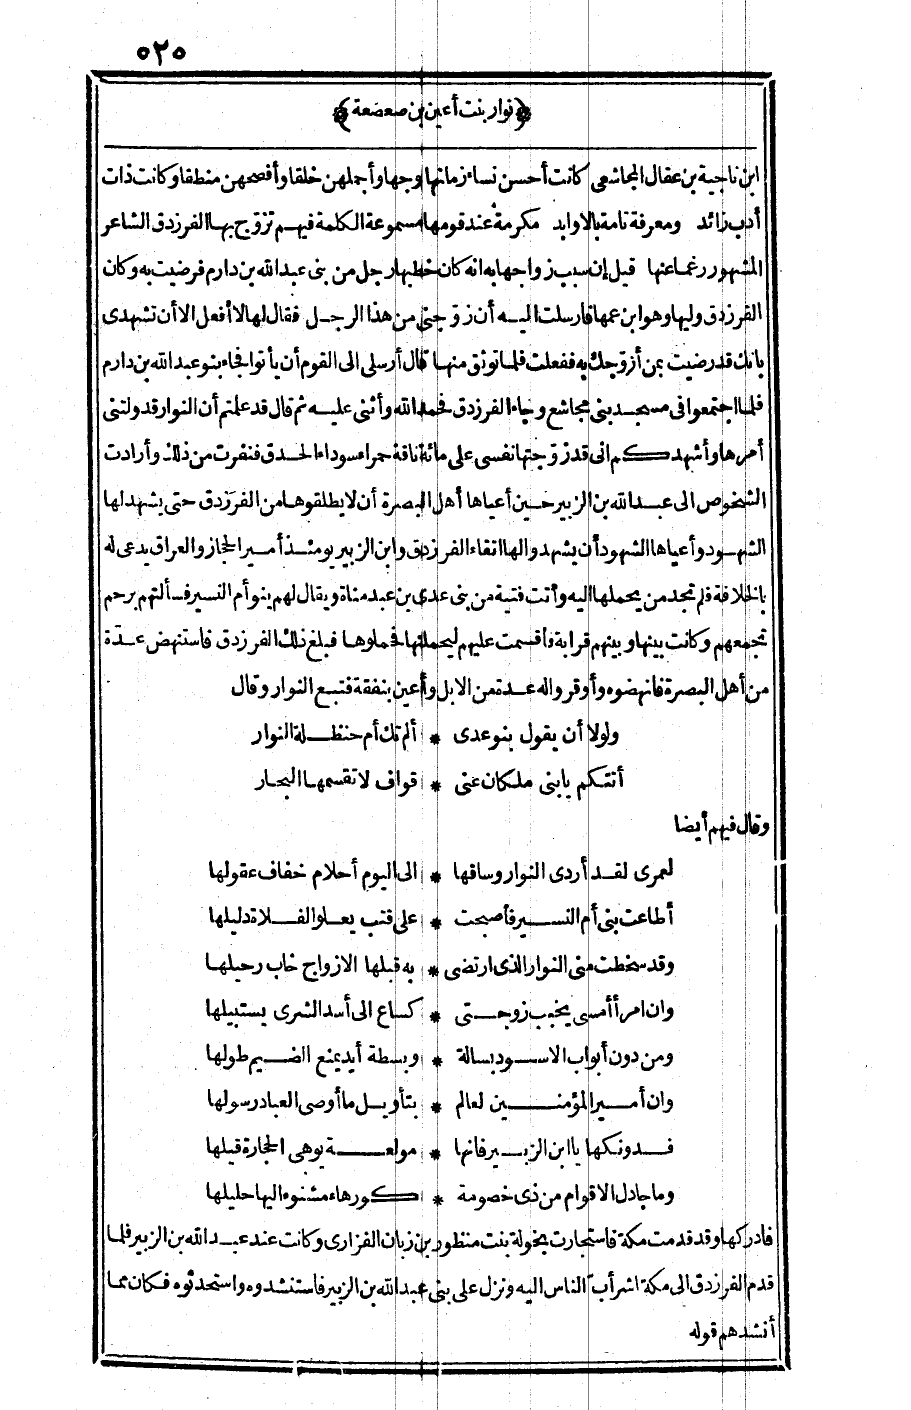 ٥٢٥
﴿نوار بنت أعين بن صعصعة﴾
ابن ناجية بن عقال المجاشعي كانت أحسن نساء زمانها وجها وأجملهن خلقا وأفصحهن منطقا وكانت ذات
أدب زائد ومعرفة تامة بالاوابد مكرمة عند قومها مسموعة الكلمة فيهم تزوج بها الفرزدق الشاعر
المشهور رغما عنها قيل إن سبب زواجها به انه كان خطبها رجل من بنى عبد الله بن دارم فرضيت به وكان
الفرزدق وليها وهو ابن عمها فارسلت اليه أن زوجنى من هذا الرجل فقال لها لا أفعل الا أن تشهدى
بانك قد رضيت بمن أزوجك به ففعلت فلما توثق منها قال أرسلى الى القوم أن يأتوا فجاء بنو عبد الله بن دارم
فلما اجتمعوا فى مسجد بنى مجاشع وجاء الفرزدق فحمد الله وأثنى عليه ثم قال قد علمتم أن النوار قد ولتنى
أمرها وأشهدكم انى قد زوجتها نفسى على مائة ناقة حمراء سوداء الحدق فنفرت من ذلك وأرادت
الشخوص الى عبد الله بن الزبير حين أعياها أهل البصرة أن لا يطلقوها من الفرزدق حتى يشهد لها
الشهود وأعياها الشهود أن يشهدوا لها اتقاء الفرزدق وابن الزبير يومئذ أمير الحجاز والعراق يدعى له
بالخلافة فلم تجد من يحملها اليه وأتت فتية من بنى عدى بن عبد مناة ويقال لهم بنو أم النسير فسألتهم برحم
تجمعهم وكانت بينها وبينهم قرابة فأقسمت عليهم ليحملنها فحملوها فبلغ ذلك الفرزدق فاستنهض عدة
من أهل البصرة فانهضوه وأوقروا له عدة من الابل وأعين بنفقة فتبع النوار وقال
ولولا أن يقول بنو عدى * ألم تك أم حنظلة النوار
أتتكم يا بنى ملكان عنى * قواف لا تقسمها البحار
وقال فيهم أيضا
لعمرى لقد أردى النوار وساقها * الى اليوم أحلام خفاف عقولها
أطاعت بنى أم النسير فأصبحت * على قتب يعلو الفلاة دليلها
وقد سخطت منى النوار الذى ارتضى * به قبلها الازواج خاب رحيلها
وان امرأ أمسى يخبب زوجتى * كساع الى أسد الشرى يستبيلها
ومن دون أبواب الاسود بسالة * وبسطة أيد يمنع الضيم طولها
وان أمير المؤمنين لعالم * بتأويل ما أوصى العباد رسولها
فدونكها يا ابن الزبير فانها * مولعة يوهى الحجارة قيلها
وما جادل الاقوام من ذى خصومة * كورهاء مشنوء اليها حليلها
فادركها وقد قدمت مكة فاستجارت بخولة بنت منظور بن زبان الفزارى وكانت عند عبد الله بن الزبير فلما
قدم الفرزدق الى مكة اشرأب الناس اليه ونزل على بنى عبد الله بن الزبير فاستنشدوه واستحدثوه فكان مما
أنشدهم قوله